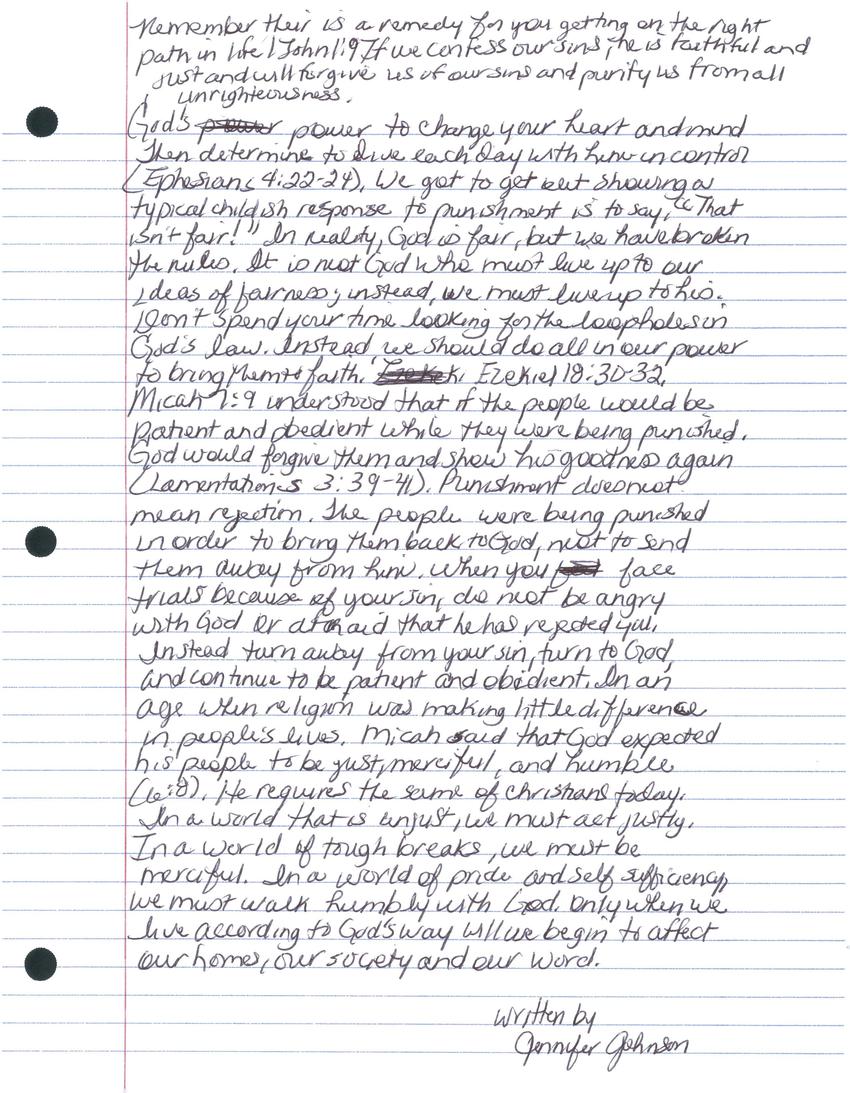 Remember their is a remedy for you getting on the right
path in life 1 John 1:9 If we confess our sins, he is faithful and
just and will forgive us of our sins and purify us from all
unrighteousness.
God's power to change your heart and mind
Then determine to live each day with him in control
(Ephesians 4:22-24). We got to get out showing a
typical childish response to punishment is to say, "That
isn't fair!" In reality, God is fair, but we have broken
the rules. It is not God who must live up to our
ideas of fairness; instead, we must live up to his.
Don't spend your time looking for the loopholes in
God's law. Instead we should do all in our power
to bring them to faith. Ezekiel 18:30-32.
Micah 7:9 understood that if the people would be
patient and obedient while they were being punished.
God would forgive them and show his goodness again
(Lamentations 3:39-41). Punishment does not
mean rejection. The people were being punished
in order to bring them back to God, not to send
them away from him. When you face
trials because of your sin, do not be angry
with God or afraid that he has rejected you.
Instead turn away from your sin, turn to God,
and continue to be patient and obidient. In an
age when religion was making little difference
in people's lives. Micah said that God expected
his people to be just, merciful, and humble
(6:8). He requires the same of christians today.
In a world that is unjust, we must act justly.
In a world of tough breaks, we must be
merciful. In a world of pride and self sufficiency
we must walk humbly with God. Only when we
live according to God's way will we begin to affect
our homes, our society and our word.
written by
Jennifer Johnson